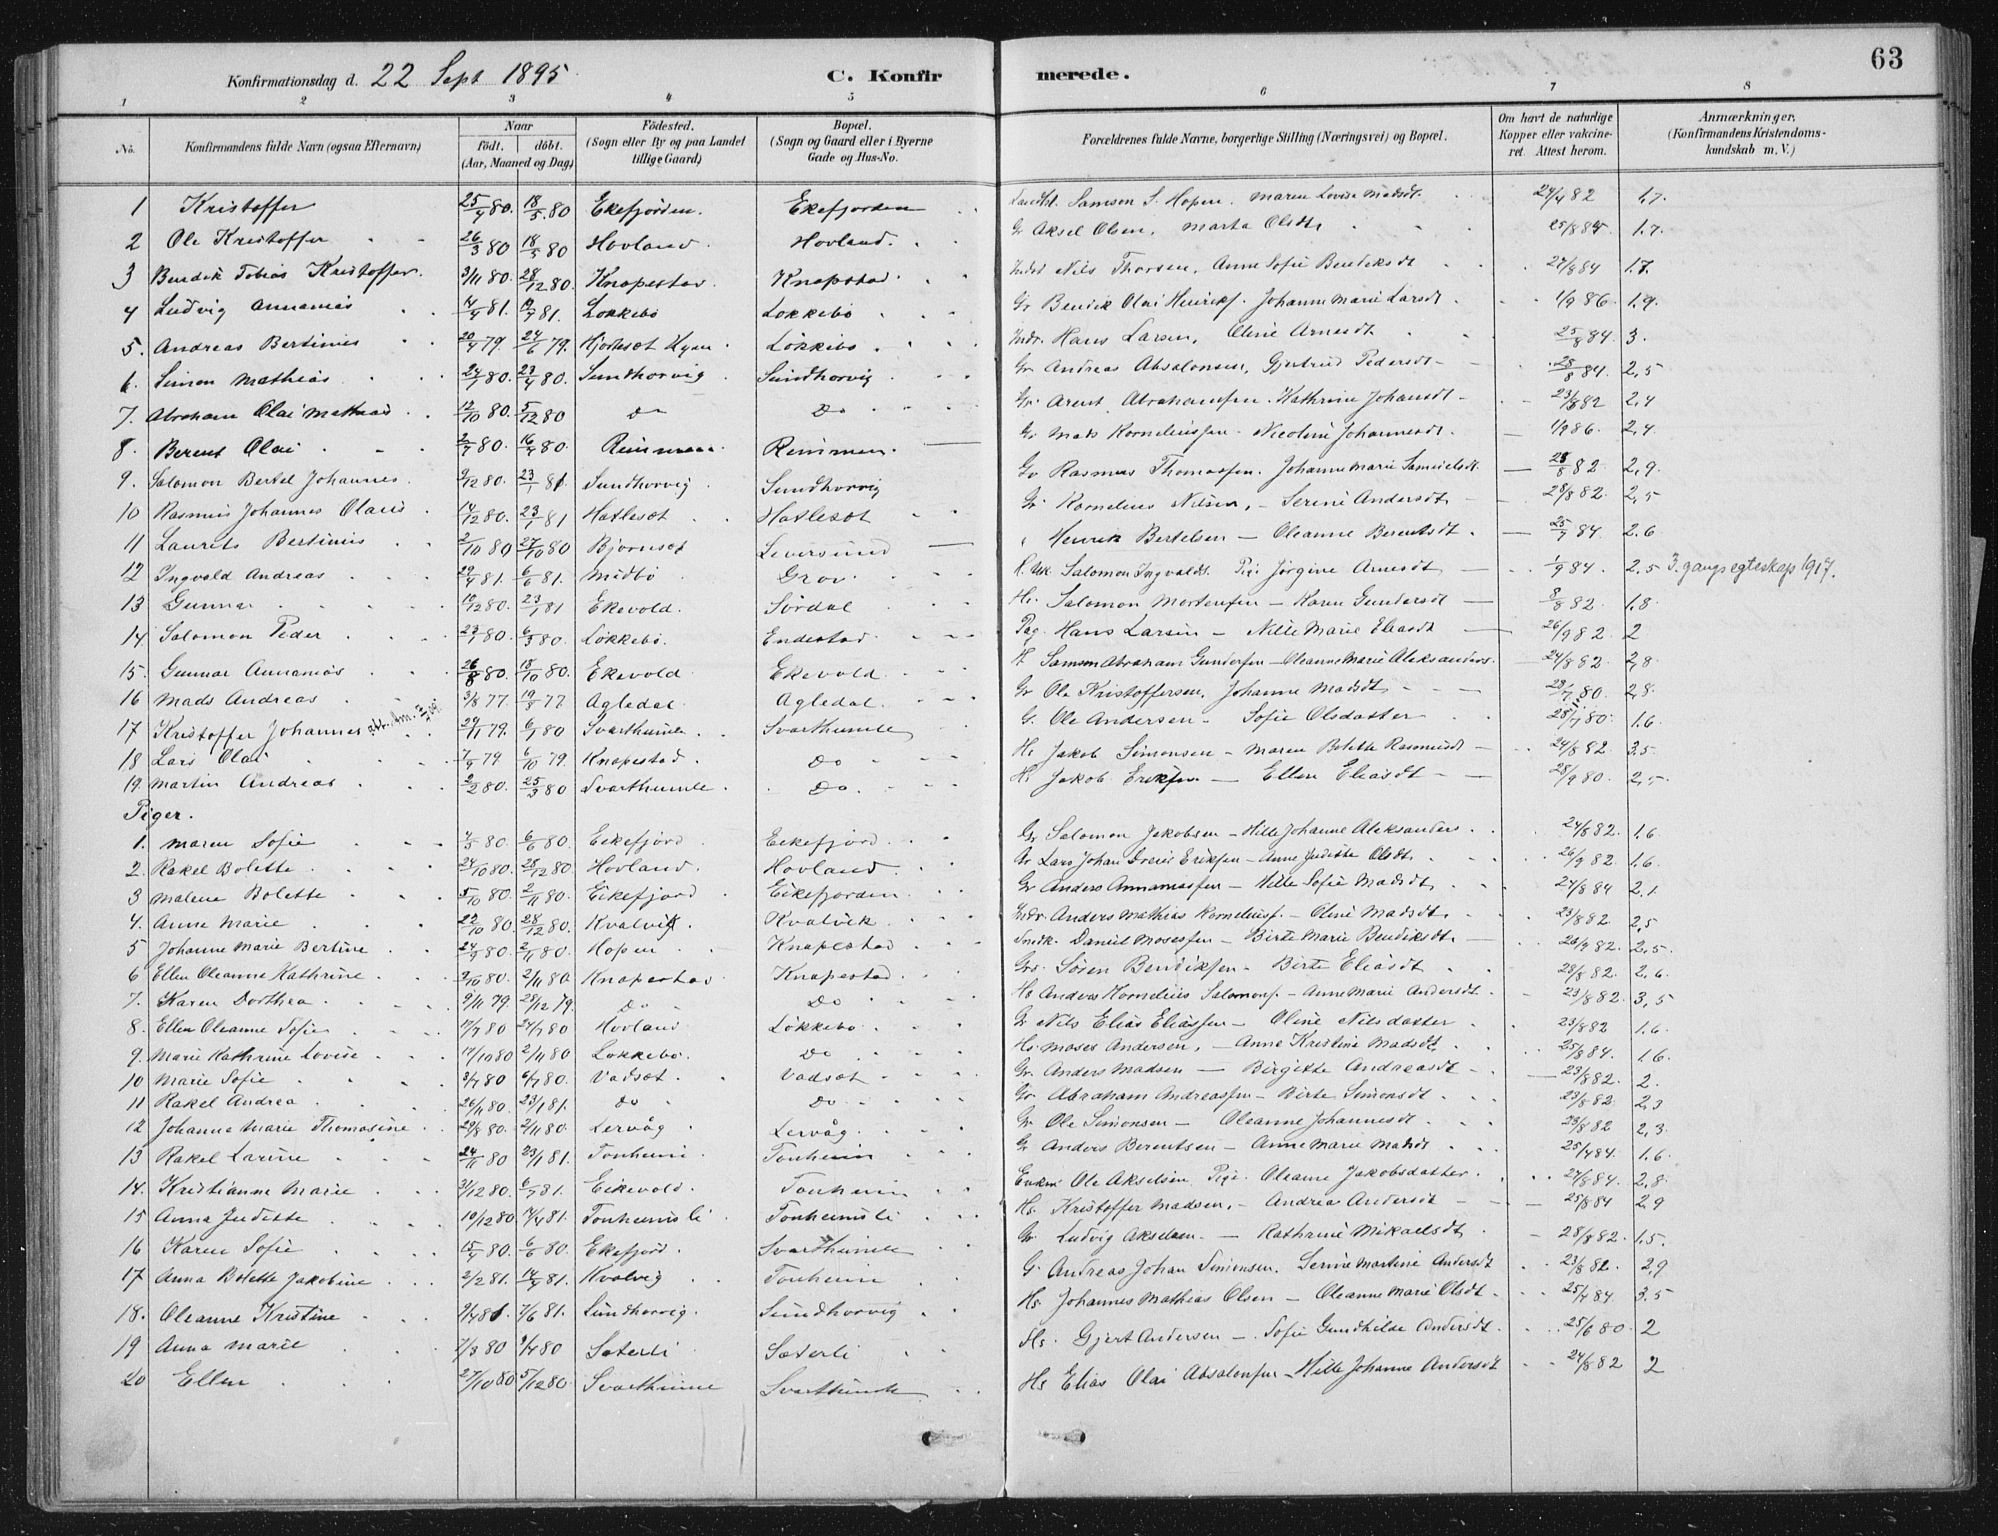 63
Konfirmationsdag d. 22 Sept 1895. C. Konfirmerede.
1 2 3 4 5 6 7 8
No. Konfirmandens fulde Navn (ogsaa Efternavn) Naar födt. döbt. (Aar, Maaned og Dag) Födested. (Sogn eller By og paa Landet tillige Gaard) Bopæl. (Sogn og Gaard eller i Byerne Gade og Hus-No. Forældrenes fulde Navne, borgerlige Stilling (Næringsvei) og Bopæl. Om havt de naturlige Kopper eller vakcineret. Attest herom. Anmærkninger. (Konfirmandens Kristendomskundskab m. V.)
1 Kristoffer 25/4 80. 18/5 80 Ekefjorden. Ekefjorden Samson S. Hopen. Maren Lovise Madsdt. 24/4 82 1.7.
2 Ole Kristoffer 26/3 80 18/5 80 Hovland. Hovland. Gr Aksel Olsen, Marta Olsdt. 1.7.
3 Bendik Tobias Kristoffer. 3/11 80. 28/12 80. Knapestad Knapstad. Indst Nils Thorsen, Anne Sofie Bendiksdt 27/8 84 1.7.
4 Ludvig Annanias 81. 81. Løkkebø Løkkebø Gr Bendik Olai Henriks. Johanne Marie Larsdt 1/9 86 1.9.
5. Andreas Bertinius 20/4 79. 24/6 79. Løkkebø Indr. Hans Larsen, Oline Arnesdt 25/8 84 3.
6. Simon Mathias 24/1 80. 23/4 80. Sundhorvig Sundhorvig Gr Andreas Absalonsen, Gjertrud Pedersdt 28/8 84. 2,5
7. Abraham Olai Mathias 12/10 80. 5/12 80 Do Do Gr Arent Abrahamsen. Kathrine Johansdt 23/8 82 2,4
8. Berent Olai 80. 16/4 80. Reinmen. Gr Mads Kornelinssen. Nicoline Johannesdt. 1/9 86. 2,4.
9. Salomon Bertel Johannes 9/12 80. 23/1 81 Sundhorvig. Sundhorvig Gr Rasmus Thomassen. Johanne Marie Samuelsdt. 28/8 82. 2,9.
10 Rasmus Johannes Olaus 14/12 80. 23/1 81 Hatleset Hatleset Gr Kornelius Nilsen, Serine Andersdt 28/8 82. 2,5
11 Laurits Bertinius 2/10 80 27/10 80 Bjørnset Leversund Henrik Bertelsen — Oleanne Berentsdt. 25/7 84. 2.6
12 Ingvald Andreas 29/4 81. 6/6 81. Midbø Grov. Salomon Ingvaldt. Pige Jørgine Arnesdt 1/9 84. 2.5 3. gangs egteskap 1917.
13 Gunnar 10/12 80. 23/1 81 Ekevold. Sørdal Hs. Salomon Mortensen — Karen Gundersdt 8/8 82. 1.8.
14. Salomon Peder 23/1 80. 6/3 80. Løkkebø. Endestad. Pag. Hans Larsen — Nille Marie Eliasdt 26/9 82. 2
15. Gunnar Annanias 26/8 80. 18/10 80. Ekevold Ekevold. Samson Abraham Gundersen — Oleanne Marie Aleksanders. 24/8 82. 2,8.
16 Mads Andreas 3/8 77. 19/8 77 Agledal. Agledal Gr Ole Kristoffersen, Johanne Madsdt. 80. 2,8.
17 Kristoffer Johannes 29/11 79. 6/1 80 Svarthumle. Svarthumle G. Ole Andersen — Sofie Olsdatter 80. 1.6.
18 Lars Olai 7/9 79. 6/10 79. Knapestad. Do Hs. Jakob Simonsen — Maren Bolette Rasmusdt 24/8 82. 3.5
19. Martin Andreas 2/2 80. 25/3 80 Svarthumle. Do. Hs. Jakob Eriksen — Ellen Eliasdt 28/9 80. 2,5
Piger.
1. Maren Sofie 4/5 80. 6/6 80. Eikefjord Eekefjord. Gr Salomon Jakobsen — Hille Johanne Aleksanders. 24/8 82. 1.6.
2. Rakel Bolette 24/10 80. 28/12 80 Hovland. Hovland. Gr Lars Johan Eriksen — Anne Juditte Olsdt 26/9 82 1.6.
3 Malene Bolette 5/10 80. 2/11 80. Eikefjord Eikefjorden Gr Anders Annaniassen — Hille Sofie Madsdt. 24/8 84 2.1
4. Anne Marie 22/10 80. 28/12 80. Kvalvik. Kvalvik Indr. Anders Mathias Korneliusf. — Oline Madsdt. 23/8 82. 2,5
5 Johanne Marie Bertine 24/9 80. 2/11 80. Hopen Knapestad Daniel Mosessen — Birte Marie Bendiksdt. 26/9 82. 2,5.
6 Ellen Oleanne Kathrine 2/10 80. 2/11 80. Knapestad Knapestad. Søren Bendiksen — Birte Eliasdt 28/8 82. 2.6.
7. Karen Dorthea 9/11 79 28/12 79. Do Do Hs Anders Kornelius Salomons. — Anne Marie Andersdt. 23/8 82. 3,5
8. Ellen Oleanne Sofie 17/7 80 24/7 80 Hovland Løkkebø Gr Nils Elias Eliassen — Oline Nilsdatter 23/8 82 1.6.
9. Marie Kathrine Lovise 17/10 80 2/11 80. Løkkebø. Do Hs. Moses Andersen, — Anne Kristine Madsdt. 25/8 84. 1.6.
10 Marie Sofie 3/7 80 6/7 80. Vadset. Vadset Gr. Anders Madsen — Birgitte Andreasdt 23/8 82. 2.
11 Rakel Andrea 26/11 80. 23/1 81. Do Do Gr Abraham Andreassen — Birte Simonsdt 23/8 82. 2,3
12 Johanne Marie Thomasine 29/8 80. 2/11 80. Lervåg Lervåg. Gr Ole Simonsen — Oleanne Johannesdt 23/8 82 2,3.
13 Rakel Larine 24/11 80 23/1 81. Tonheim. Tonheim Gr Anders Berentsen — Anne Marie Madsdt 25/4 84. 1.6.
14. Kristianne Marie 31/12 80. 81. Eikevold. Tonheim Enkm. Ole Akselsen Pige Oleanne Jakobsdatter. 27/8 84. 2.8.
15 Anna Juditte 19/12 80. 7/4 81. Tonheimsli Tonheimsli Hs. Kristoffer Madsen, — Andrea Andersdt 25/8 84 2.9
16 Karen Sofie 15/4 80. 6/6 80. Ekefjord. Svarthumle Gr. Ludvig Akselsen — Kathrine Mikaelsdt 28/8 82. 1.5.
17 Anna Bolette Jakobine 2/2 81. 81. Kvalvig Tonheim G. Andreas Johan Simonsen. Serine Martine Andersdt 23/8 82. 2,9
18. Oleanne Kristine 81. 7/6 81. Sundhorvig. Sundhorvig Hs. Johannes Mathias Olsen — Oleanne Marie Olsdt 25/4 84. 3.5
19 Anna Marie 7/3 80 80 Sæterli Sæterli Hs. Gjert Andersen — Sofie Gundhilde Andersdt. 25/6 80. 2
20 Ellen 27/10 80 5/12 80. Svarthumle Svarthumle Hs Elias Olai Absalonsen — Hille Johanne Andersdt 24/8 82 2